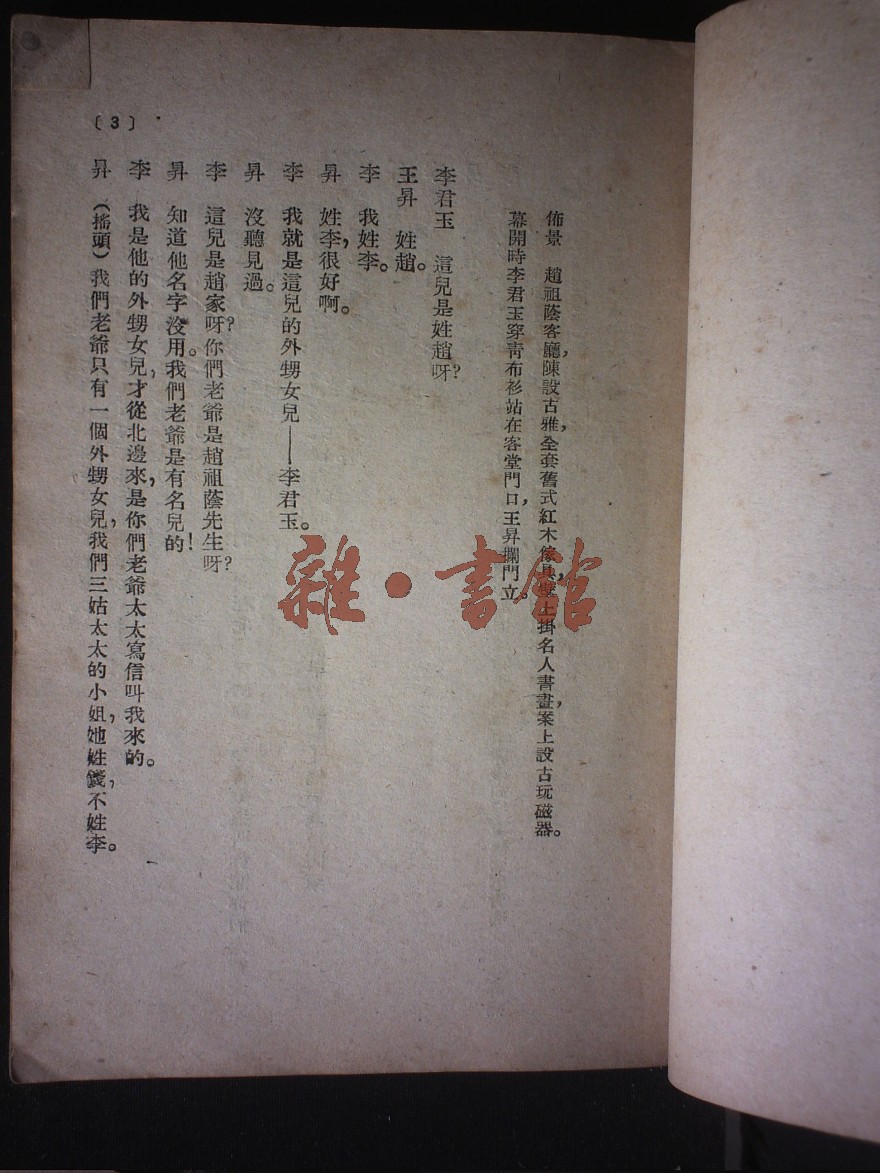 佈景　趙祖蔭客廳，陳設古雅，全套舊式紅木傢具，壁上掛名人書畫，案上設古玩磁器。
幕開時李君玉穿靑布衫站在客堂門口，王昇攔門立。
李君玉　這兒是姓趙呀？
王昇　姓趙。
李　我姓李。
昇　姓李，很好啊。
李　我就是這兒的外甥女兒——李君玉。
昇　沒聽見過。
李　這兒是趙家呀？你們老爺是趙祖蔭先生呀？
昇　知道他名字沒用。我們老爺是有名兒的！
李　我是他的外甥女兒，才從北邊來，是你們老爺太太寫信叫我來的。
昇　（搖頭）我們老爺只有一個外甥女兒，我們三姑太太的小姐，她姓錢，不姓李。
〔3〕
雜·書館